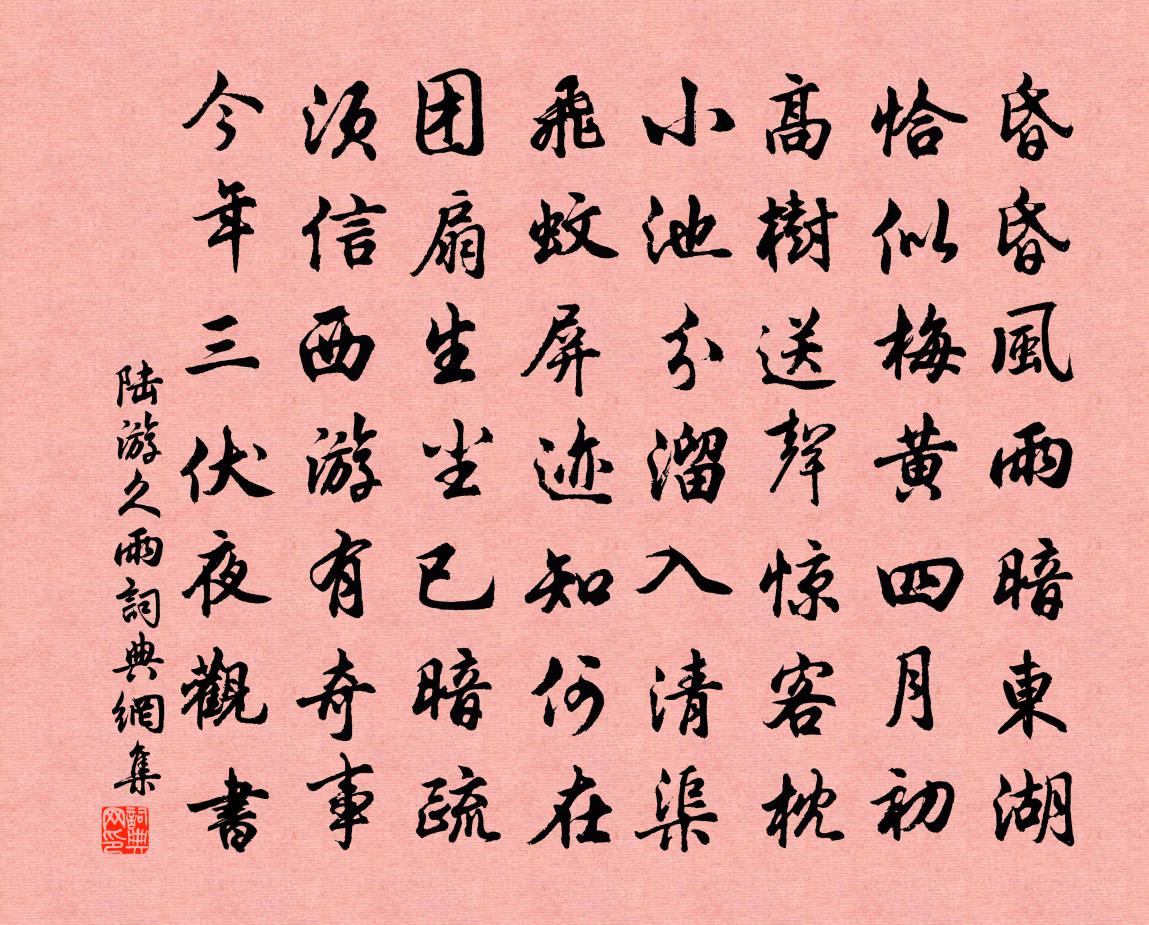 昏昏風雨暗東湖
恰似梅黄四月初
高樹送聲惊客枕
小池分溜入清渠
飛蚊屏迹知何在
团扇生尘已暗疏
须信西游有奇事
今年三伏夜觀書
陆游久雨詞典網集
詞典
网印